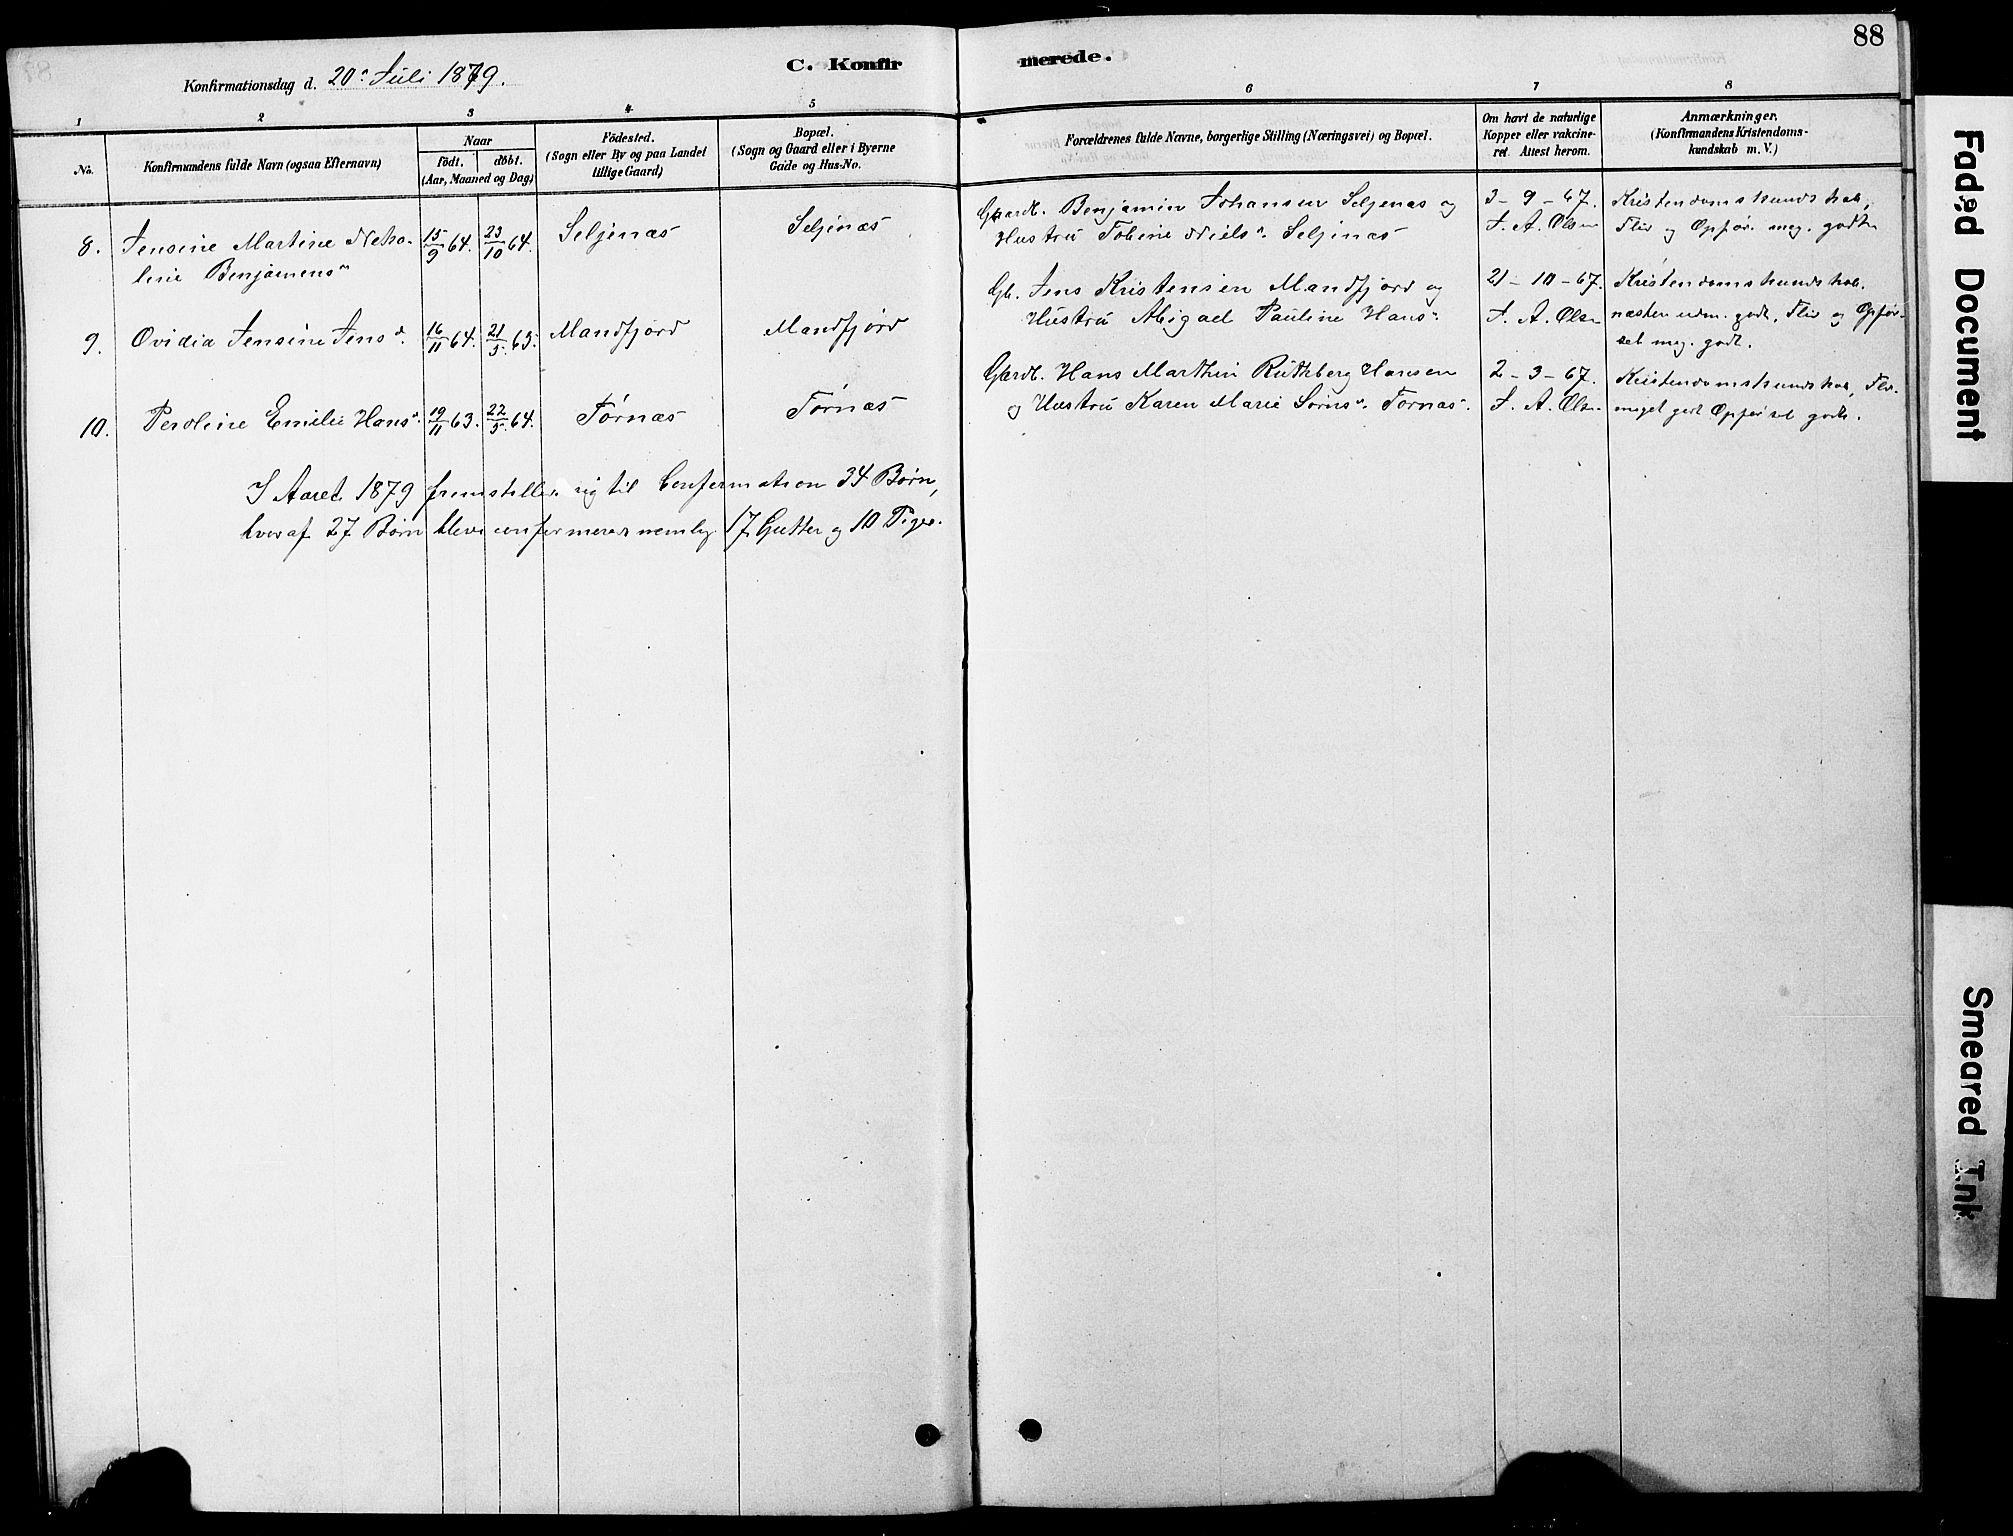 88
Konfirmationsdag d. 20de Juli 1879.
C. Konfir
merede.
1 2 3 4 5 6 7 8
No.
Konfirmandens fulde Navn (ogsaa Efternavn)
Naar
født. døbt.
(Aar, Maaned og Dag)
Fødested.
(Sogn eller By og paa Landet
tillige Gaard)
Bopæl.
(Sogn og Gaard eller i Byerne
Gade og Hus-No.
Forældrenes fulde Navne, borgerlige Stilling (Næringsvei) og Bopæl.
Om havt de naturlige
Kopper eller vakcine-
ret. Attest herom.
Anmærkninger.
(Konfirmandens Kristendoms-
kundskab m. V.)
8. Jensine Martine Neko-
line Benjamensn
15/9 64. 23/10 64. Seljenæs Seljenæs
Gaardb. Benjamin Johansen Seljenæs og
Hustru Tobine Nielsn. Seljenæs
3-9-67.
J. A. Olsen
Kristendomskundskab,
Flid og Opfør. meg. godt
9. Ovidia Jensine Jensd.
16/11 64. 21/5. 65. Mandfjord Mandfjord
Gb. Jens Kristensen Mandfjord og
Hustru Abigael Pauline Hansn
21-10-67.
J. A. Olsen
Kristendomskundskab.
næsten udm. godt, Flid og Opfør-
sel meg. godt.
10. Peroline Emilie Hansn
19/11 63. 22/5. 64. Tørnæs Tørnæs
Gaardb. Hans Marthin Ruthberg Hansen
og Hustru Karen Marie Sørnsn. Tørnæs.
2-3-67.
J. A. Olsen
Kristendomskundskab, Flid
meget godt Opførsel godt.
I Aaret 1879 fremstilledes sig til Confermation 34 Børn,
hvoraf 27 Børn bleve confermerede nemlig 17 Gutter og 10 Piger.
Faded Document
Smeared Ink